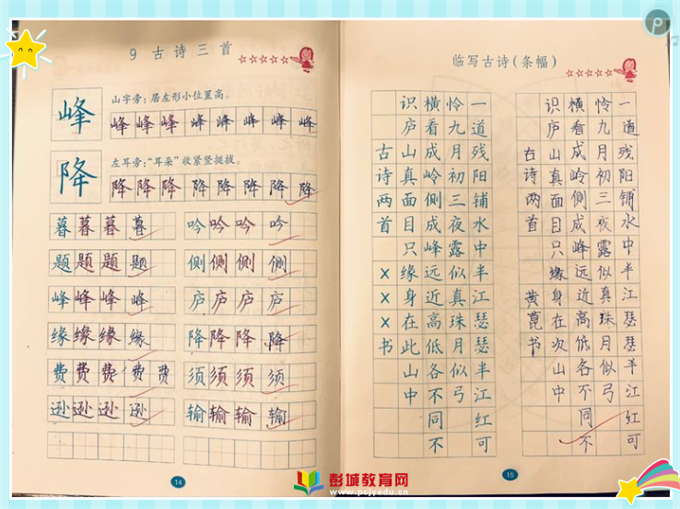 9 古诗三首
山字旁:居左形小位置高。
峰 峰峰峰峰峰峰峰峰
左耳旁:“耳朵”收紧竖挺拔。
降 降降降降降降降降
暮暮暮暮 吟吟吟吟
题题题题 侧侧侧侧
峰峰峰峰 庐庐庐庐
缘缘缘缘 降降降降
费费费费费 须须须须
逊逊逊逊 输输输输
14
临写古诗(条幅)
一道残阳铺水中半江瑟瑟半江红可
怜九月初三夜露似真珠月似弓
横看成岭侧成峰远近高低各不同不
识庐山真面目只缘身在此山中
古诗两首 X X X 书
一道残阳铺水中半江瑟瑟半江红可
怜九月初三夜露似真珠月似弓
横看成岭侧成峰远近高低各不同不
识庐山真面目只缘身在次山中
古诗两首 黄 书
15
彭城教育网
www.pcjyedu.cn